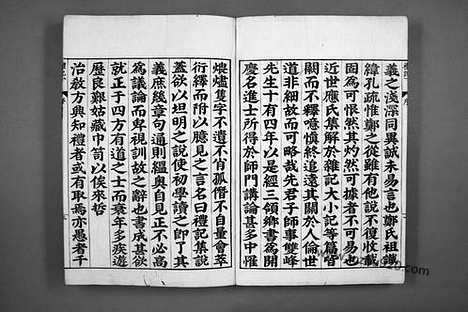 義之淺深同異誠未易言也鄭氏祖讖
緯孔疏惟鄭之從雖有他說不復收載
固爲可恨然其灼然可據者不可易也
近世應氏集解於雜記大小記等篇皆
闕而不釋噫愼終追遠其關於人倫世
道非細故而可略哉先君子師事雙峰
先生十有四年以是經三領鄉書爲開
慶名進士所得於師門講論甚多中罹
煨燼隻字不遺不肖孤僭不自量會萃
衍繹而附以臆見之言名曰禮記集說
蓋欲以坦明之說使初學讀之卽了其
義庶幾章句通則縕奧自見正不必高
爲議論而卑視訓故之辭也書成甚欲
就正于四方有道之士而衰年多疾遊
歷良艱姑藏巾笥以俟來哲
治敎方興知禮者或有取焉亦愚者千